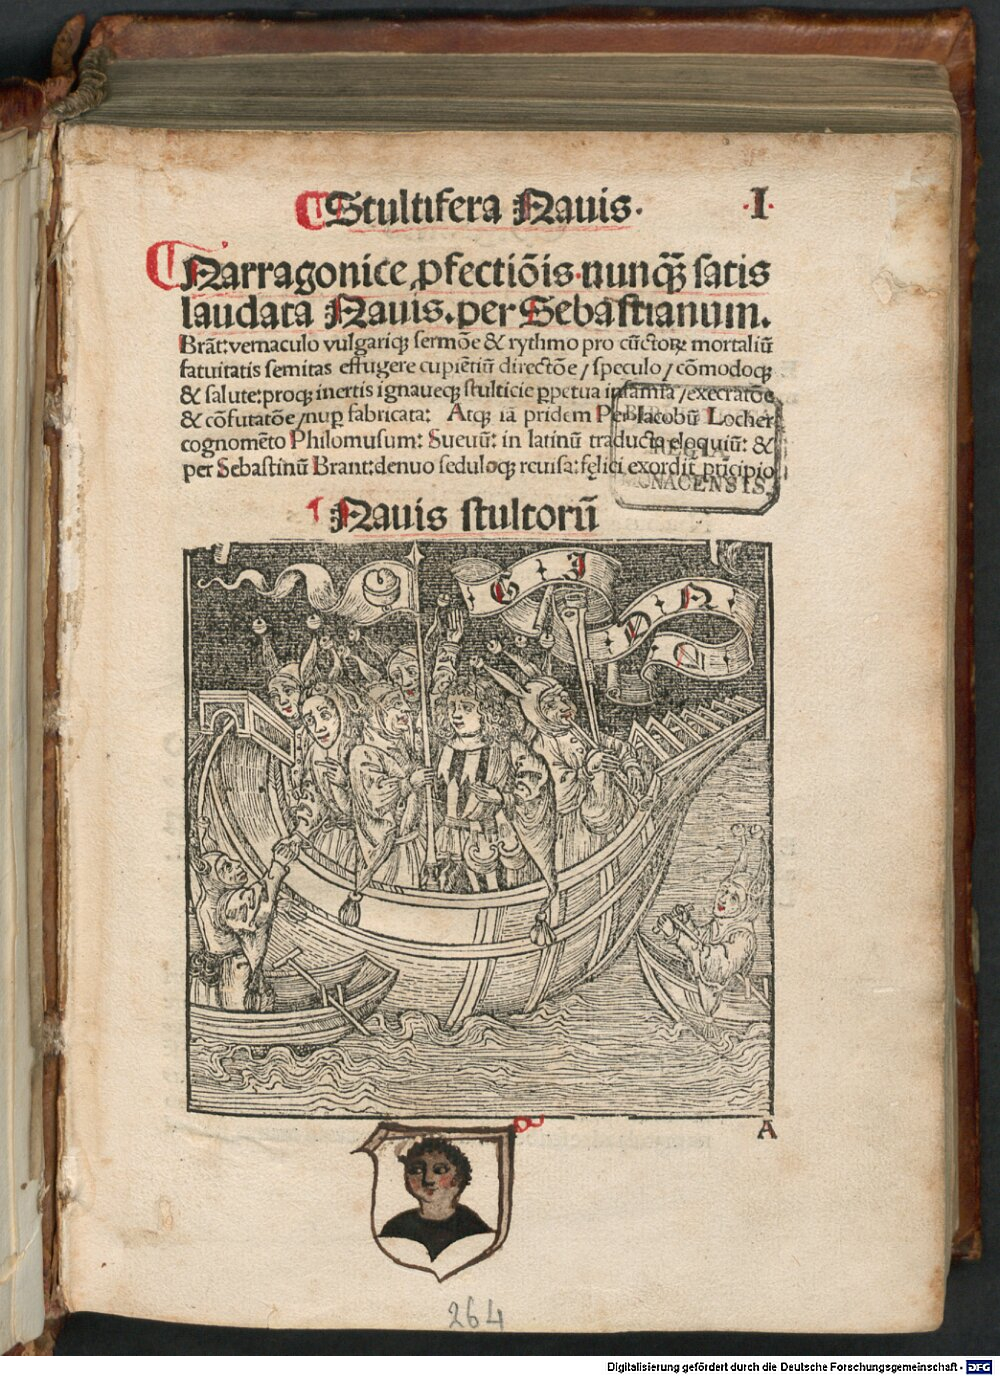 Stultifera Nauis. ·I·
Narragonice ꝓfectiōis nunq̄ȝ satis
laudata Nauis. per Sebastianum.
Brāt: vernaculo vulgariqȝ sermōe & rythmo pro cūctoꝝ mortaliū
fatuitatis semitas effugere cupiētiū directōe / speculo / cōmodoqȝ
& salute: proqȝ inertis ignaueqȝ stulticie ꝑpetua infamia / execratōe
& cōfutatōe / nuꝑ fabricata: Atqȝ iā pridem Per Iacobū Locher
cognomēto Philomusum: Sueuū: in latinū traducta eloquiū: &
per Sebastinū Brant: denuo seduloqȝ reuisa: fęlici exordit̄ pricipio
REGIA
MONACENSIS.
Nauis stultorū
G I
D N
A
264
Digitalisierung gefördert durch die Deutsche Forschungsgemeinschaft - DFG